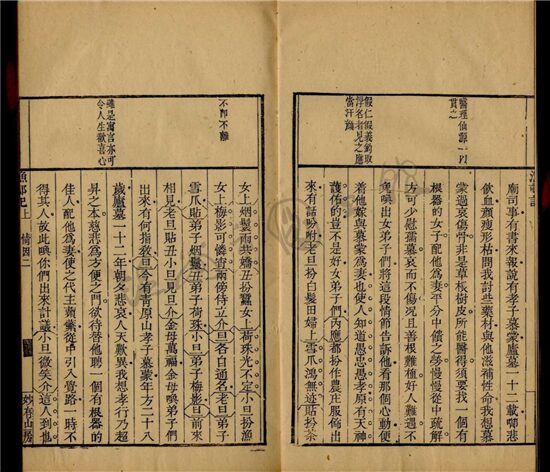 醫理仙源一以
貫之
假仁假義釣取
浮名者見之應
當汗顏
漁邨記
廟司事有書來報說有孝子慕蒙廬墓一十二載啣悲
飲血顏瘦形枯問我討些藥材與他滋補性命我想慕
蒙過哀傷神非是草根樹皮所能醫得須要找一個有
根器的女子配他爲妻平分中饋之勞慢慢從中疏解
方可少慰孺慕哀而不傷况且善根難植好人難遇不
免喚出女弟子們將這段情節告訴他看那個心動便
着他嫁與慕蒙爲妻也使人知道愚忠愚孝原有天神
護佑的豈不是好女弟子們內應都扮作農庄服飾出
來有話吩咐老旦扮白髮田婦上雪爪鴻無迹貼扮茶
不卽不離
雖是寓言亦可
令人生歡喜心
女上烟鬟雨共嬌丑扮蠶女上荷珠光不定小旦扮漁
女上梅影可憐宵兩傍侍立介旦各自通名老旦弟子
雪爪貼弟子烟鬟丑弟子荷珠小旦弟子梅影旦前來
相見老旦貼丑小旦見旦介金母萬福金母喚弟子們
出來有何指教旦今有青原山孝子慕蒙年方二十八
歲廬墓一十二年朝夕悲哀人天歎異我想孝行乃超
昇之本慈悲爲方便之門欲待替他聘一個有根器的
佳人配他爲妻後之代主蘋蘩從中引入覺路一時不
得其人故此喚你們出來計議小旦微笑介這人到也
漁邨記
上
情因二
妙有山房